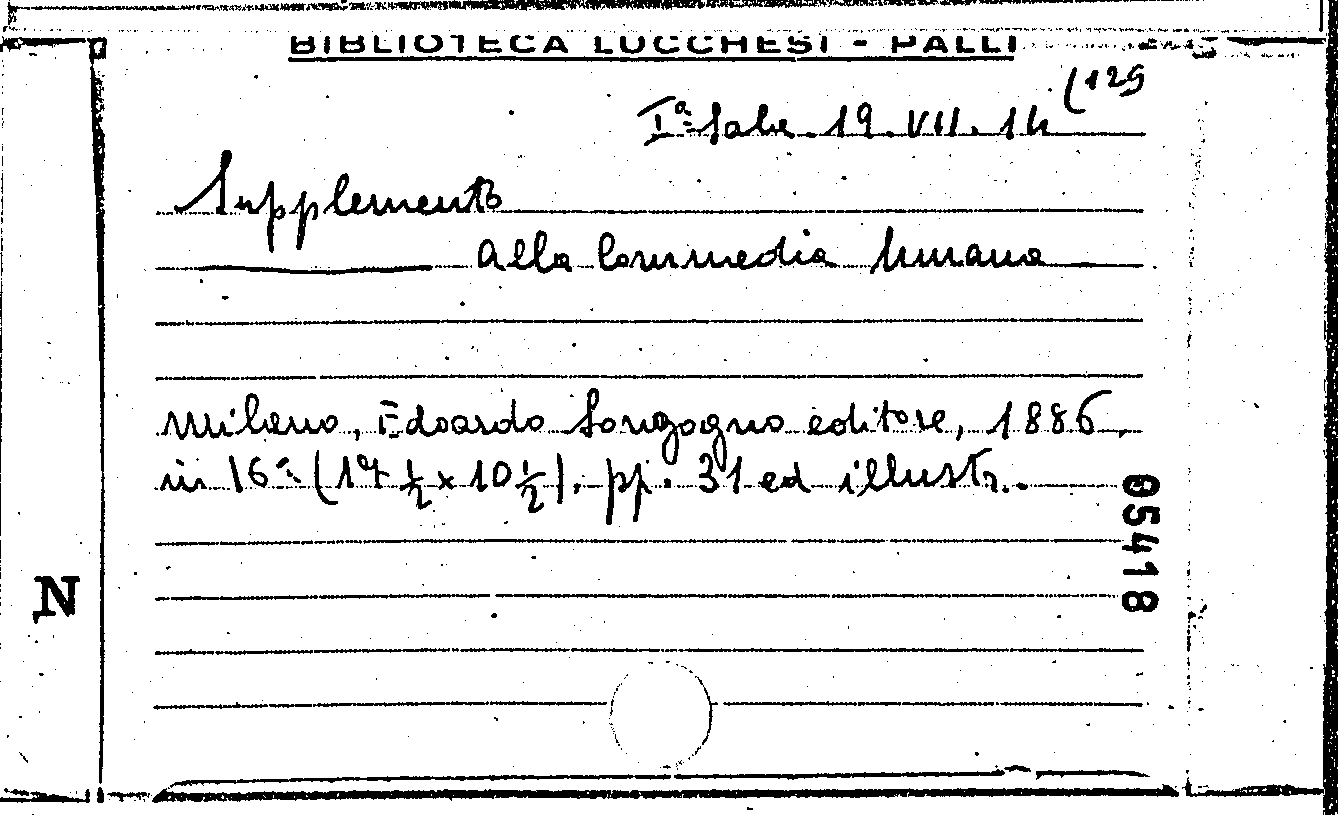 BIBLIOTECA LUCCHESI - PALLI
Iª Sala. 19. VII. 14 (129
Supplemento
alla Commedia Umana
Milano, Edoardo Sonzogno editore, 1886,
in 16º (14 ½ x 10 ½). pp. 31 ed illustr.
05418
N